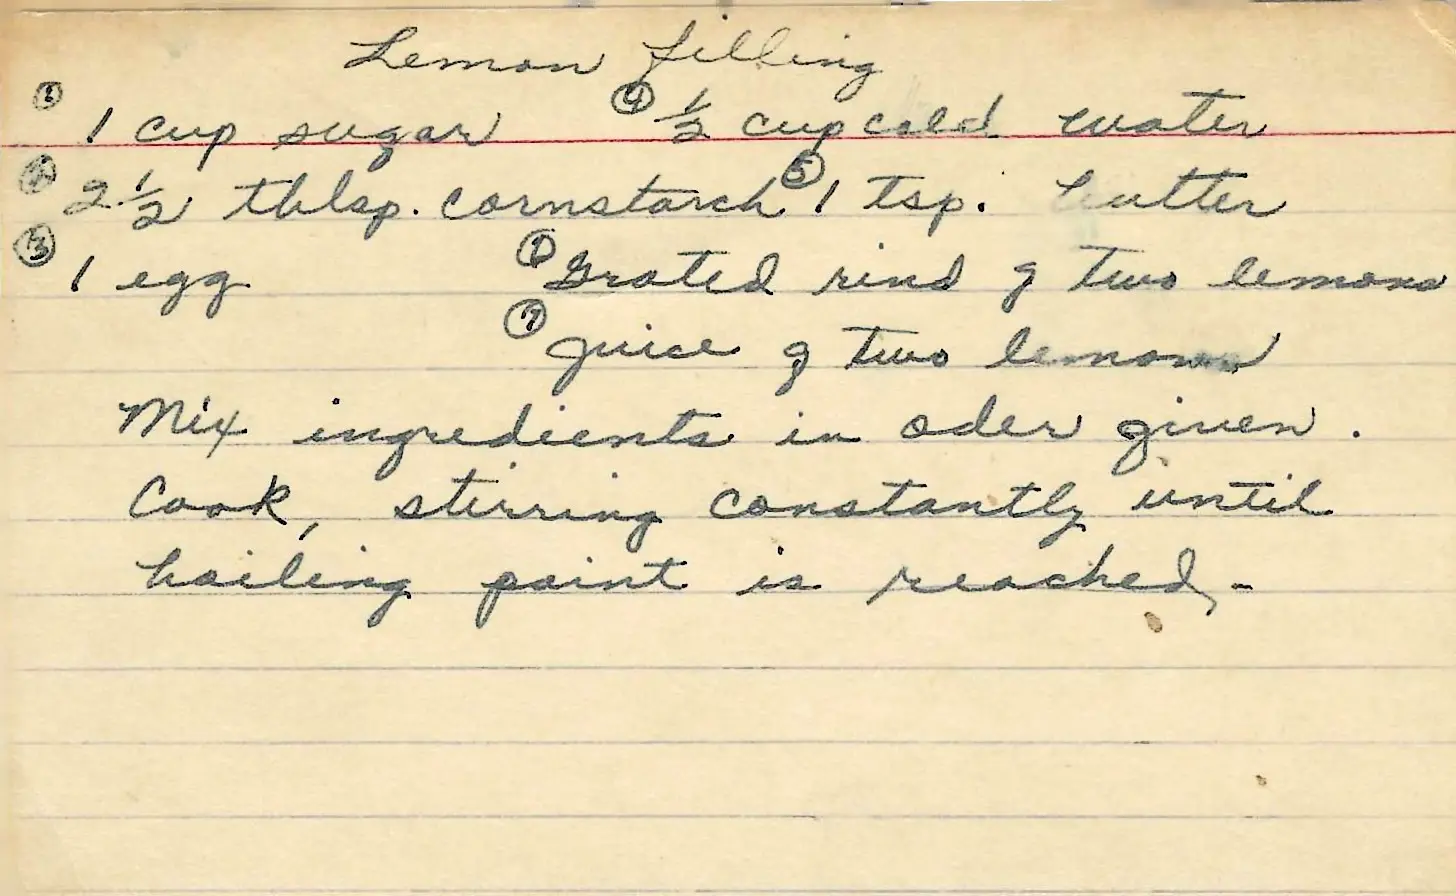 Lemon filling
② 1 cup sugar ④ ½ cup cold water
2½ tblsp. cornstarch ⑤ 1 tsp. butter
③ 1 egg ① Grated rind of two lemons
⑦ Juice of two lemons
Mix ingredients in oder given.
Cook, stirring constantly until
boiling point is reached,-